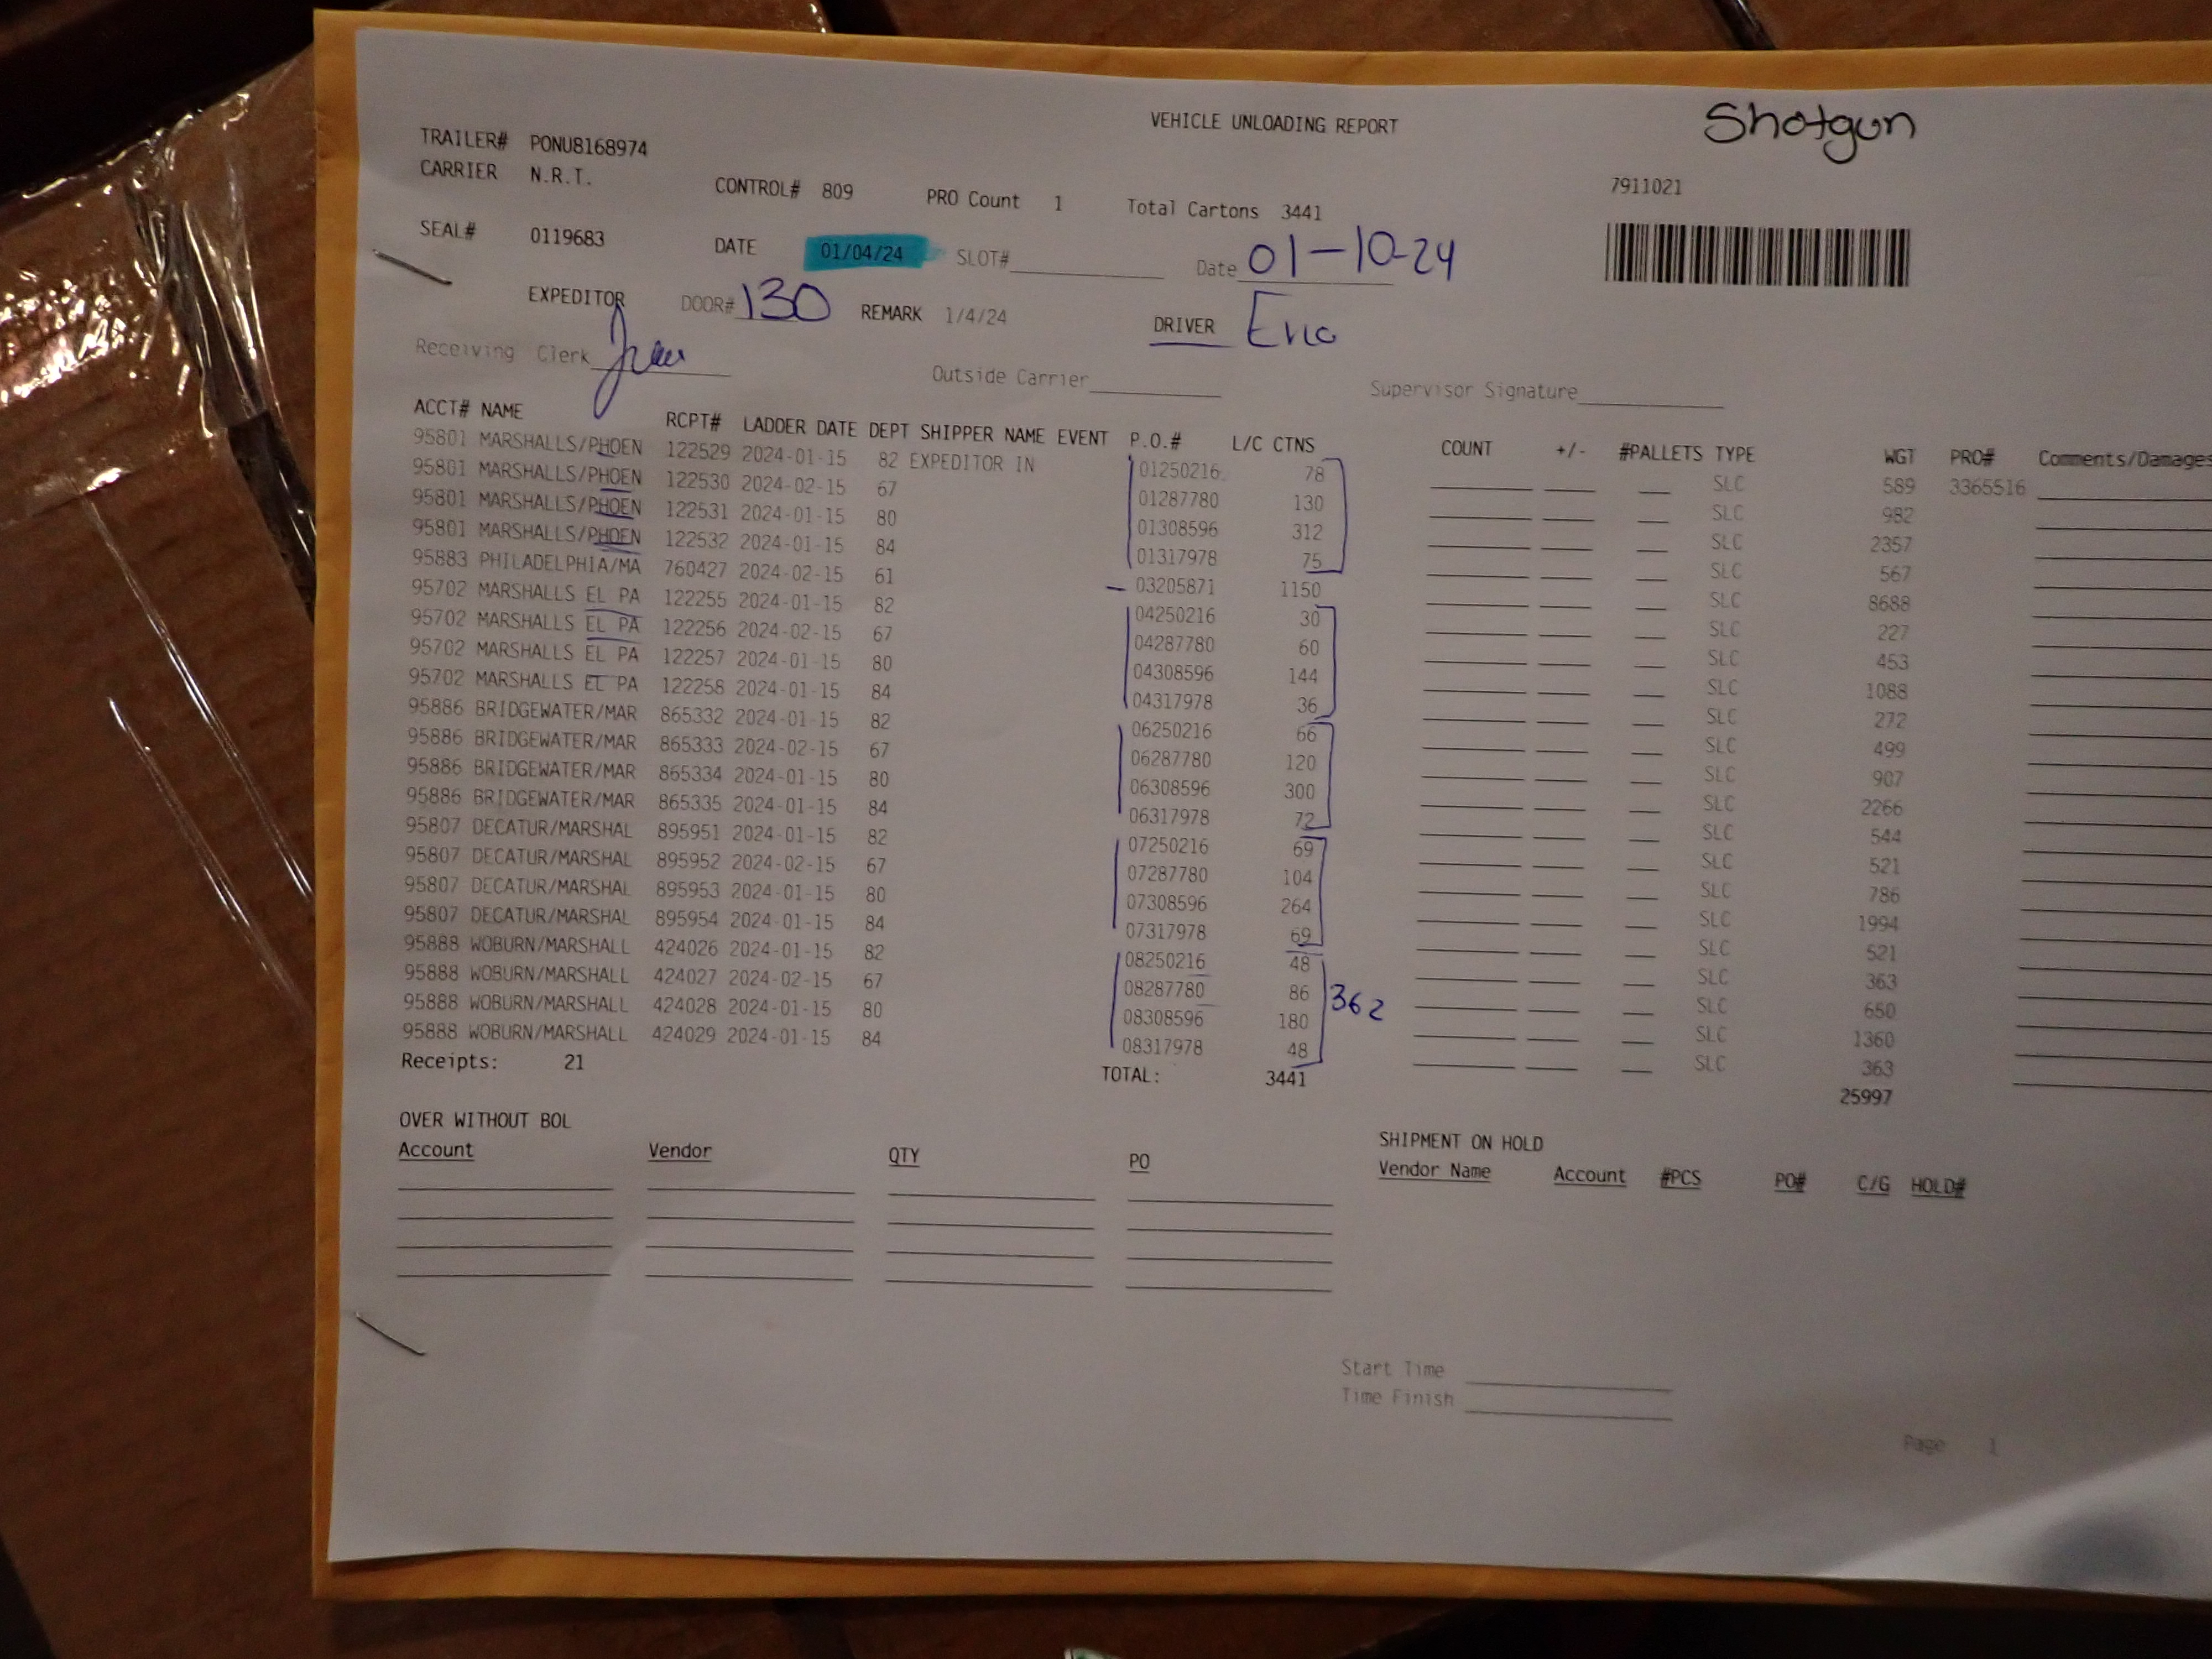 Shotgun
VEHICLE UNLOADING REPORT
TRAILER# PONU8168974
CARRIER N.R.T.
CONTROL# 809 PRO Count 1 Total Cartons 3441
7911021
SEAL# 0119683 DATE 01/04/24 SLOT# Date 01-10-24
EXPEDITOR DOOR# 130 REMARK 1/4/24 DRIVER Eric
Receiving Clerk Outside Carrier Supervisor Signature
ACCT# NAME RCPT# LADDER DATE DEPT SHIPPER NAME EVENT P.O.# L/C CTNS COUNT +/- #PALLETS TYPE WGT PRO# Comments/Damages
95801 MARSHALLS/PHOEN 122529 2024-01-15 82 EXPEDITOR IN 01250216 78 SLC 589 3365516
95801 MARSHALLS/PHOEN 122530 2024-02-15 67 01287780 130 SLC 982
95801 MARSHALLS/PHOEN 122531 2024-01-15 80 01308596 312 SLC 2357
95801 MARSHALLS/PHOEN 122532 2024-01-15 84 01317978 75 SLC 567
95883 PHILADELPHIA/MA 760427 2024-02-15 61 03205871 1150 SLC 8688
95702 MARSHALLS EL PA 122255 2024-01-15 82 04250216 30 SLC 227
95702 MARSHALLS EL PA 122256 2024-02-15 67 04287780 60 SLC 453
95702 MARSHALLS EL PA 122257 2024-01-15 80 04308596 144 SLC 1088
95702 MARSHALLS EL PA 122258 2024-01-15 84 04317978 36 SLC 272
95886 BRIDGEWATER/MAR 865332 2024-01-15 82 06250216 66 SLC 499
95886 BRIDGEWATER/MAR 865333 2024-02-15 67 06287780 120 SLC 907
95886 BRIDGEWATER/MAR 865334 2024-01-15 80 06308596 300 SLC 2266
95886 BRIDGEWATER/MAR 865335 2024-01-15 84 06317978 72 SLC 544
95807 DECATUR/MARSHAL 895951 2024-01-15 82 07250216 69 SLC 521
95807 DECATUR/MARSHAL 895952 2024-02-15 67 07287780 104 SLC 786
95807 DECATUR/MARSHAL 895953 2024-01-15 80 07308596 264 SLC 1994
95807 DECATUR/MARSHAL 895954 2024-01-15 84 07317978 69 SLC 521
95888 WOBURN/MARSHALL 424026 2024-01-15 82 08250216 48 SLC 363
95888 WOBURN/MARSHALL 424027 2024-02-15 67 08287780 86 362 SLC 650
95888 WOBURN/MARSHALL 424028 2024-01-15 80 08308596 180 SLC 1360
95888 WOBURN/MARSHALL 424029 2024-01-15 84 08317978 48 SLC 363
Receipts: 21 TOTAL: 3441 25997
OVER WITHOUT BOL SHIPMENT ON HOLD
Account Vendor QTY PO Vendor Name Account #PCS PO# C/G HOLD#
Start Time
Time Finish
Page 1